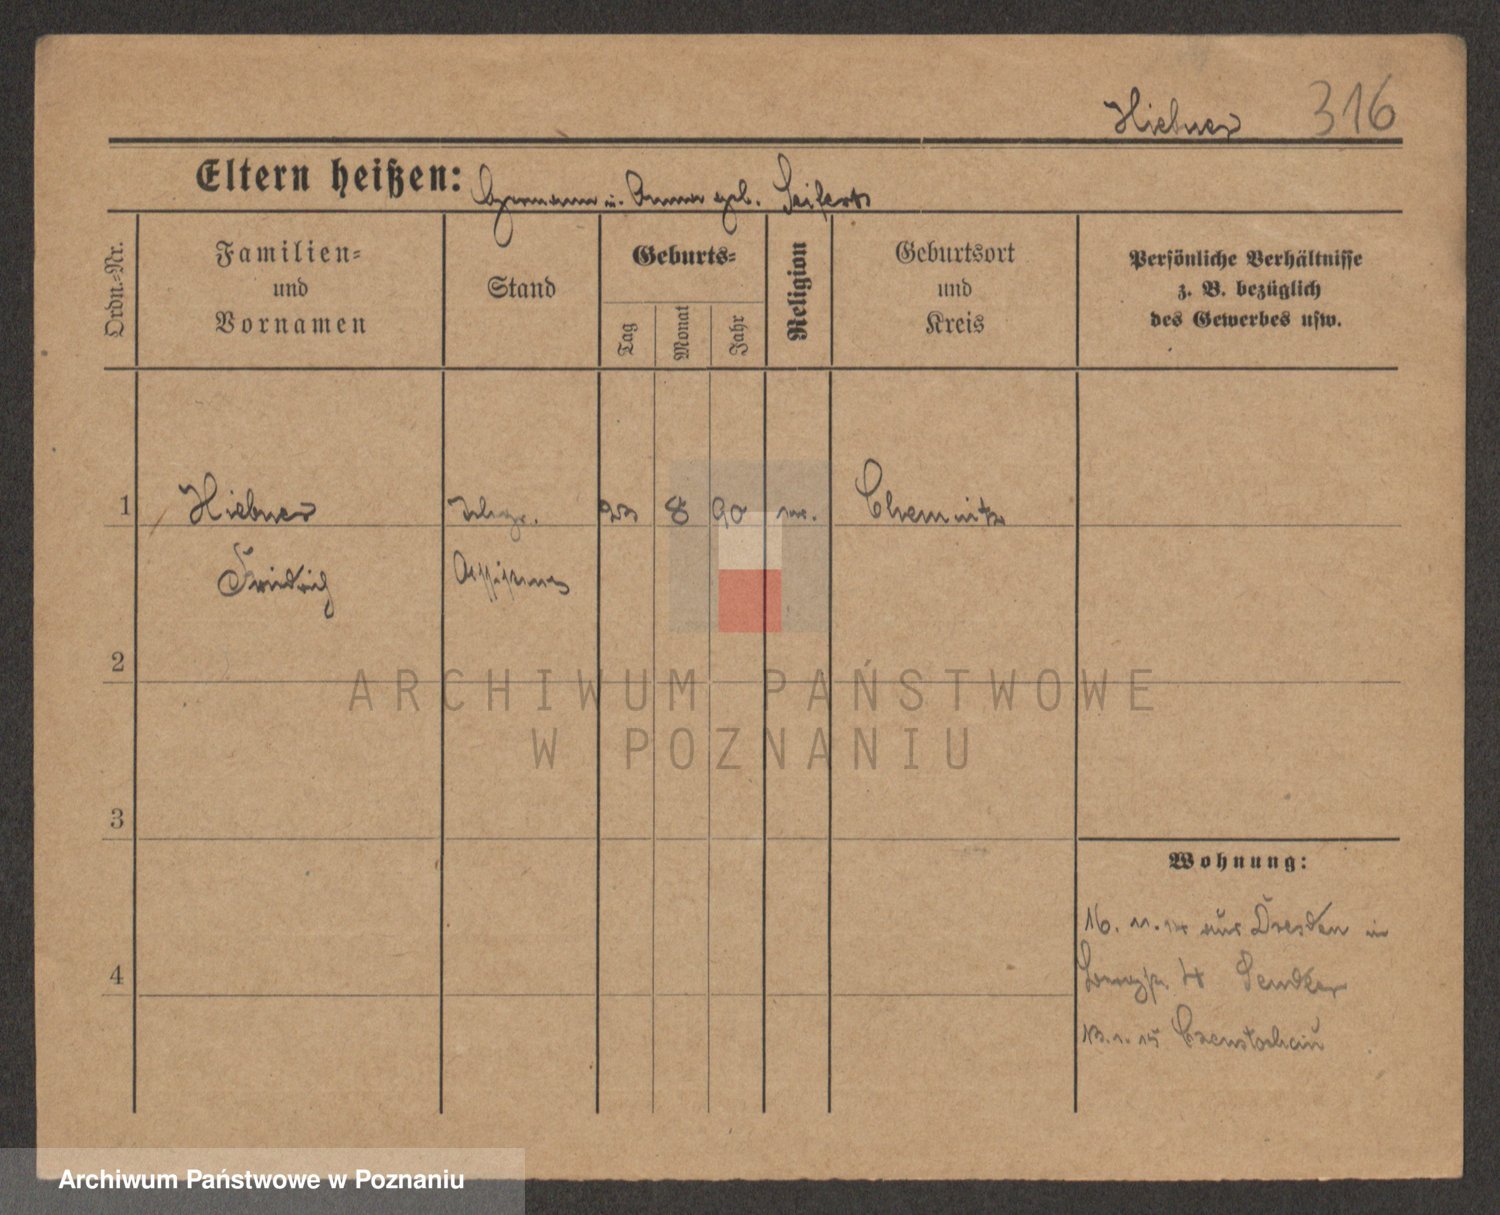 Hiebner 316
Eltern heißen: Hermann u. Anna geb. Seifert
Ordn.-Nr.
Familien-
und
Vornamen
Stand
Geburts-
Tag
Monat
Jahr
Religion
Geburtsort
und
Kreis
Persönliche Verhältnisse
z. B. bezüglich
des Gewerbes usw.
1 Hiebner 8 90 Chemnitz
Friedrich Assistent
2
ARCHIWUM PAŃSTWOWE
W POZNANIU
3
Wohnung:
16. 11. 14 aus Dresden in
4
13. 1. 15 Czenstochau
Archiwum Państwowe w Poznaniu